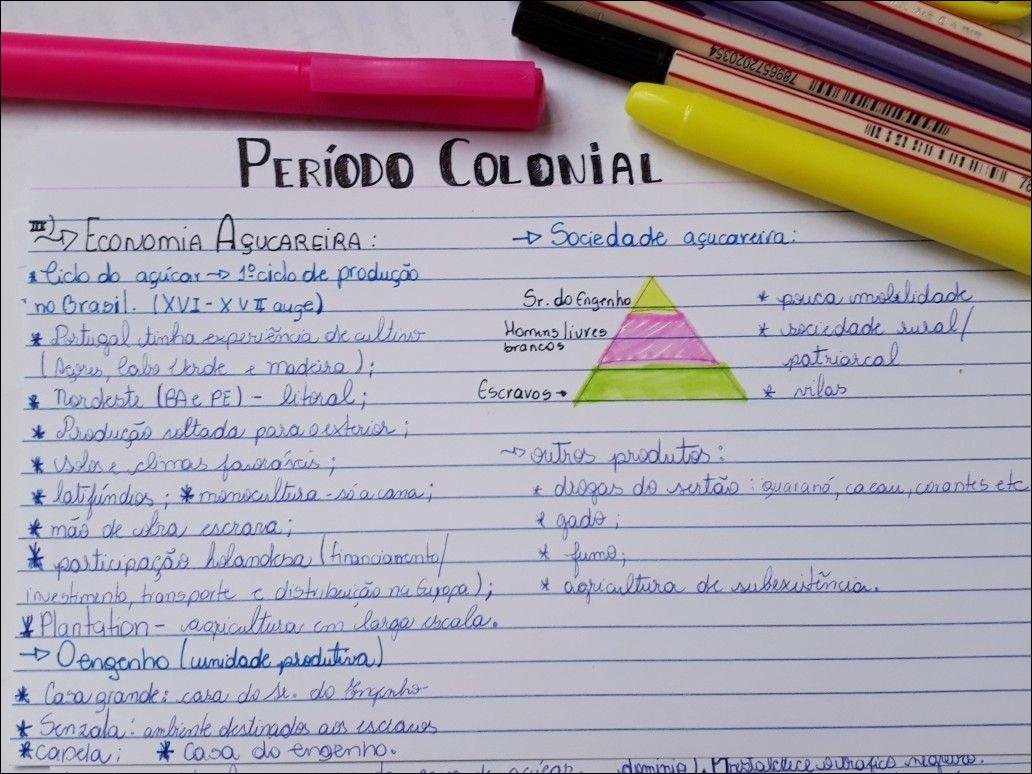 PERÍODO COLONIAL
III) → ECONOMIA AÇUCAREIRA:
* Ciclo do açúcar → 1º ciclo de produção
no Brasil. (XVI - XVII auge)
* Portugal tinha experiência de cultivo
(Açores, Cabo Verde e madeira);
* Nordeste (BA e PE) - litoral;
* Produção voltada para o exterior;
* solos e climas favoráveis;
* latifúndios; * monocultura - só a cana;
* mão de obra escrava;
* participação holandesa (financiamento/
investimento, transporte e distribuição na Europa);
* Plantation - agricultura em larga escala.
→ O engenho (unidade produtiva)
* Casa grande: casa do Sr. do Engenho
* Senzala: ambiente destinados aos escravos
* capela; * Casa do engenho.
→ Sociedade açucareira:
Sr. do Engenho
Homens livres
brancos
Escravos →
* pouca mobilidade
* sociedade rural/
patriarcal
* vilas
→ outros produtos:
* drogas do sertão: guaraná, cacau, corantes etc
* gado;
* fumo;
* agricultura de subexistência.
7896572020354